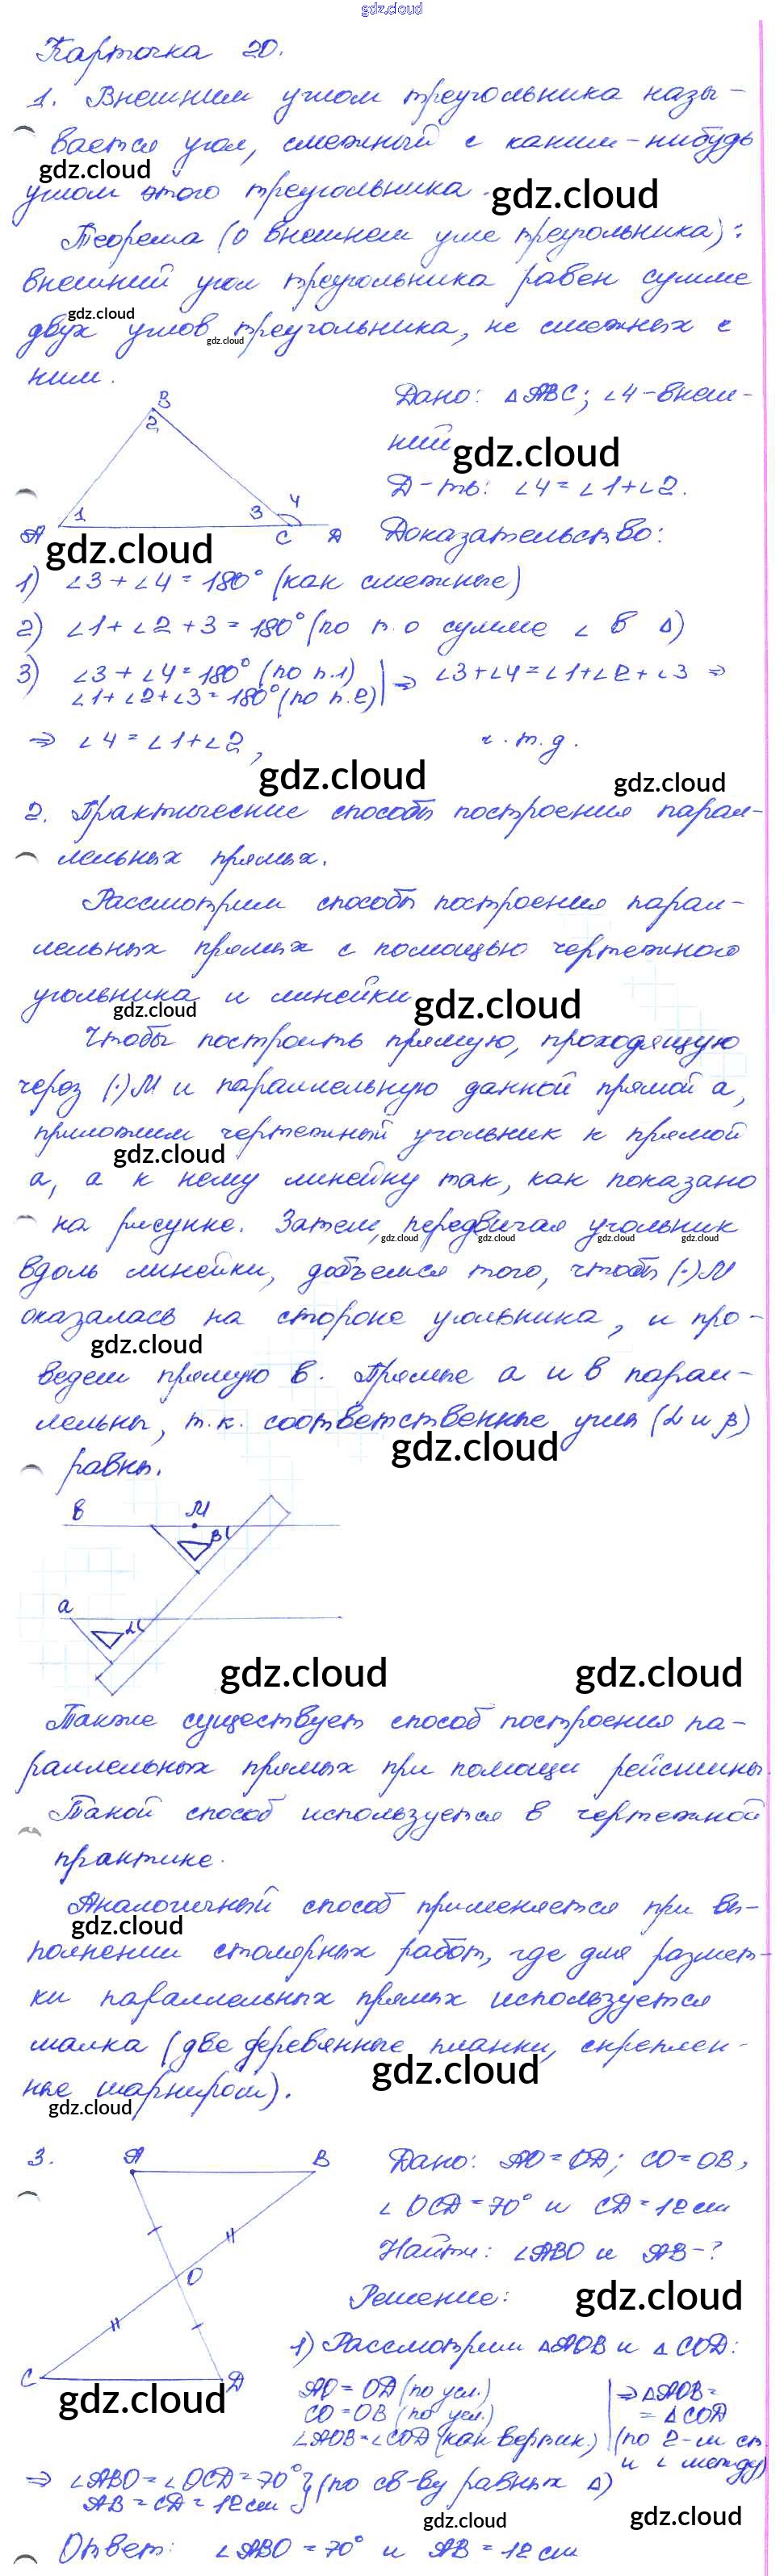 gdz.cloud
Карточка 20.
1. Внешним углом треугольника назы-
вается угол, смежный с каким-нибудь
gdz.cloud
углом этого треугольника.
gdz.cloud
Теорема (о внешнем угле треугольника):
внешний угол треугольника равен сумме
gdz.cloud
двух углов треугольника, не смежных с
gdz.cloud
ним.
Дано: △ABC; ∠4-внеш-
ний
gdz.cloud
Д-ть: ∠4=∠1+∠2.
B
2
A 1 3 4 C D
gdz.cloud
Доказательство:
1) ∠3+∠4=180° (как смежные)
2) ∠1+∠2+3=180° (по т.о сумме ∠ в △)
3) ∠3+∠4=180° (по п.1) | ⇒ ∠3+∠4=∠1+∠2+∠3 ⇒
∠1+∠2+∠3=180° (по п.2)
⇒ ∠4=∠1+∠2, ч.т.д.
gdz.cloud gdz.cloud
2. Практические способы построения парал-
лельных прямых.
Рассмотрим способы построения парал-
лельных прямых с помощью чертежного
угольника и линейки
gdz.cloud gdz.cloud
Чтобы построить прямую, проходящую
через (·)M и параллельную данной прямой a,
приложим чертежный угольник к прямой
gdz.cloud
a, а к нему линейку так, как показано
на рисунке. Затем, передвигая угольник
gdz.cloud gdz.cloud gdz.cloud gdz.cloud
вдоль линейки, добъемся того, чтобы (·)M
оказалась на стороне угольника, и про-
gdz.cloud
ведем прямую в. Прямые a и в парал-
лельны, т.к. соответственные углы (α и β)
gdz.cloud
равны.
в M
β
a
α
gdz.cloud gdz.cloud
Также существует способ построения па-
раллельных прямых при помощи рейсшины.
Такой способ используется в чертежной
практике.
Аналогичный способ применяется при вы-
gdz.cloud
полнении столярных работ, где для размет-
ки параллельных прямых используется
малка (две деревянные планки, скреплен-
gdz.cloud
ные шарниром).
gdz.cloud
3.
A B
O
C D
Дано: AO=OD; CO=OB,
∠OCD=70° и CD=12см
Найти: ∠ABO и AB-?
Решение:
gdz.cloud
1) Рассмотрим △AOB и △COD:
AO=OD (по усл.) | ⇒ △AOB=
CO=OB (по усл.) = △COD
∠AOB=∠COD (как вертик.) (по 2-м ст.
и ∠ между)
gdz.cloud
⇒ ∠ABO=∠OCD=70° } (по св-ву равных △)
AB=CD=12см
gdz.cloud gdz.cloud
Ответ: ∠ABO=70° и AB=12см